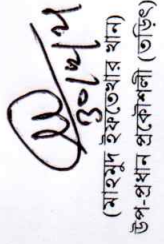 ৩০/৭/৭
(মাহমুদ ইফতেখার খান)
উপ-প্রধান প্রকৌশলী (তড়িৎ)